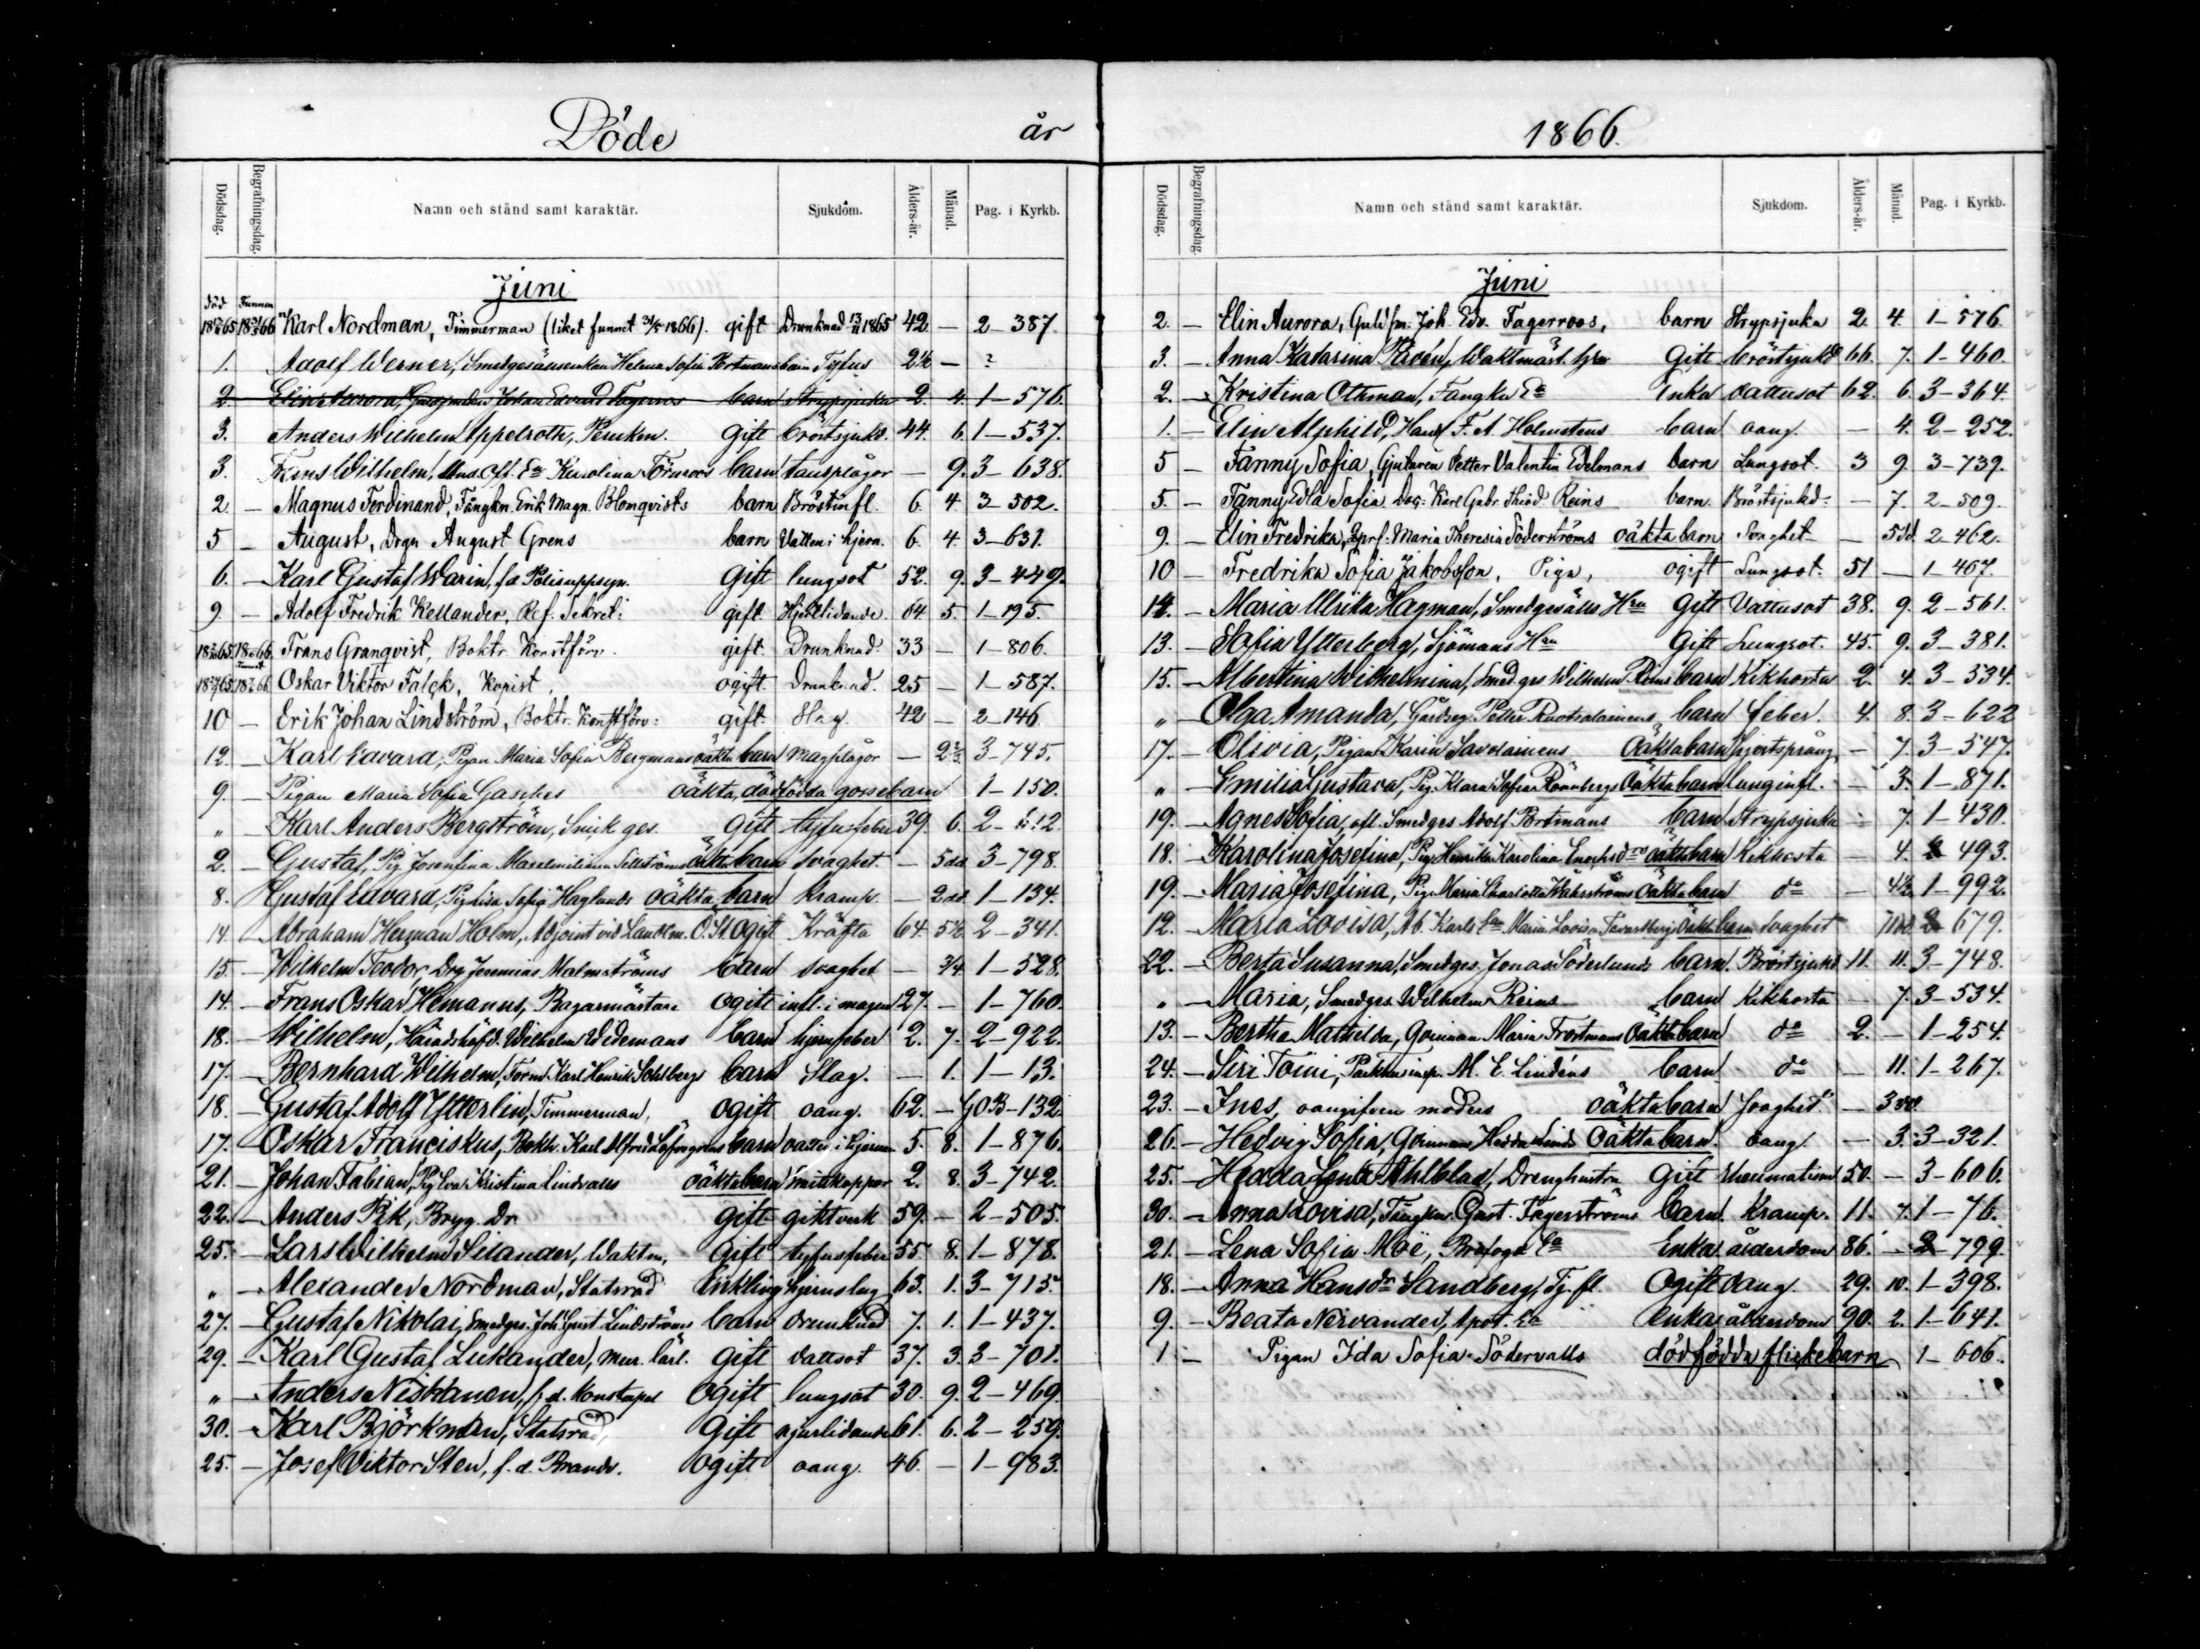 Döde år
Dödsdag. Begrafningsdag. Namn och stånd samt karaktär. Sjukdom. Ålders-år. Månad. Pag. i Kyrkb.
Juni
död Funnen
Karl Nordman, Timmerman (liket funnet 31/5 1866). gift Drunknad 13/11 1865 42 — 2—387.
1. Adolf Werner, Smedgesällsenkan Helena Sofia Portmans barn Tyfus 2½ — ?
2. Elin Aurora, Johan Edvard Fagerroos barn Strypsjuka 2. 4. 1—576.
3. Anders Wilhelm Appelroth, Gift bröstsjukd. 44. 6. 1—537.
3. Frans Wilhelm, Und. Off. Ea Karolina Törnroos barn tansplågor — 9. 3—638.
2 — Magnus Ferdinand, Fångkn. Erik Magn. Blomqvists barn Bröstinfl. 6. 4 3—502.
5 — August, Drgn August Grens barn Vatten i hjern. 6. 4. 3—631.
6. — Karl Gustaf Warin, f.d. Polisuppsyn. Gift lungsot 52. 9. 3—449.
9 — Adolf Fredrik Kellander, Ref. Sekret: gift Hjertlidande. 64 5. 1—195.
Frans Granqvist, Boktr. Konstförv. gift Drunknad. 33 — 1—806.
Oskar Viktor Falck, Kopist, ogift Drunknad. 25 — 1—587.
10 — Erik Johan Lindström, Boktr. Konstförv: gift Slag. 42 — 2—146.
12. — Karl Edvard, Pigan Maria Sofia Bergmans oäkta barn magplågor — 3—745.
9. — Pigan Maria Sofia Gasches oäkta, dödfödda gossebarn 1—150.
„ — Karl Anders Bergström, Snick ges. Gift tyfusfeber 39. 6. 2—
2. — Gustaf, Pig. Josefina Maxelmiliana Sillströms oäkta barn svaghet — 5 dd 3—798.
8. Gustaf Edvard, Pig. Lisa Sofia Haglunds oäkta barn Kramp. — 2 dd. 1—134.
14. — Abraham Herman Holm, Adjoint vid Landtm. Ö.St. Ogift Kräfta 64. 5½ 2—341.
15. — Wilhelm Teodor, Drg Jeremias Malmströms barn svaghet — 3/4. 1—528.
14. — Frans Oskar Hemanus, Bagarmästare Ogift infl. i magen 27. — 1—760.
18. — Wilhelm, Häradshöfd. Wilhelm Widemans barn hjernfeber 2. 7. 2—922.
17. — Bernhard Wilhelm, Form. Karl Henrik Sohlbergs barn Slag. — 1. 1—13.
18. — Gustaf Adolf Ytterlin, Timmerman, ogift oang. 62. — 132.
17. Oskar Franciskus, Bokh. Karl Alfred barn vatten i hjernan 5. 8. 1—876.
21. — Johan Fabian, Pig Eva Kristina Lindvalls oäkta barn mittkoppor 2. 8. 3—742.
22. — Anders Pik, Bryg. Dr. gift giktverk 59. — 2—505.
25. — Lars Wilhelm Silander, Waktm. Gift tyfusfeber 55 8. 1—878.
„ — Alexander Nordman, Statsråd Enkling hjernslag 63. 1. 3—715.
27. — Gustaf Nikolai, Smedges. Joh. Gust. Lindströms barn drunknad 7. 1. 1—437.
29. — Karl Gustaf Lukander, Mur. lärl. gift vattsot 37. 3. 3—701.
„ — Anders Niskanen, f.d. Konstapel ogift lungsot 30. 9. 2—469.
30. — Karl Björkman, Statsråd, Gift njurlidande 61. 6. 2—259.
25. — Josef Viktor Sten, f.d. Brandv. ogift oang. 46. — 1—983.
1866.
Dödsdag. Begrafningsdag. Namn och stånd samt karaktär. Sjukdom. Ålders-år. Månad. Pag. i Kyrkb.
Juni
2. — Elin Aurora, Guldsm. Joh. Edv. Fagerroos, barn Strypsjuka 2. 4. 1—576.
3. — Anna Katarina Waktmäst. hru Gift bröstsjukd 66. 7. 1—460.
2. — Kristina Othman, Fångkn Ea Enka vattusot 62. 6. 3—364.
1. — Elin Alphild, Handl F. A. Holmstens barn oang. — 4. 2—252.
5 — Fanny Sofia, Gjutaren Petter Valentin Edelmans barn Lungsot. 3 9 3—739.
5. — Fanny Edla Sofia Karl Gabr. Thiod Reins barn. Bröstsjukd: — 7. 2—509.
9. — Elin Fredrika, Maria Theresia Söderströms oäkta barn Svaghet — 5 dd. 2—462.
10 — Fredrika Sofia Jakobsson, Piga, ogift Lungsot. 51 — 1—467.
14. — Maria Ulrika Hagman, Smedgesälls Hru Gift Vattusot 38. 9. 2—561.
13. — Sofia Ytterberg, Sjömans Hru Gift Lungsot. 45. 9. 3—381.
15. — Albertina Wilhelmina, Smed.ges Wilhelm Reins barn Kikhosta 2. 4. 3—534.
„ — Olga Amanda, Gårdseg. Petter Ruotsalainens barn feber. 4. 8. 3—622
17. — Olivia, Pigan Karin Savolainens Oäkta barn hjertsprång — 7. 3—547.
„ — Emilia Gustava, Pig. Klara Sofia Rönnbergs oäkta barn lunginfl. — 3. 1—871.
19. — Agnes Sofia, afl. Smedges Adolf Portmans barn Strypsjuka — 7. 1—430.
18. — Karolina Josefina, Pig. Henrika Karolina Enochsdrs oäkta barn Kikhosta — 4. 2 493.
19. — Maria Josefina, Pig. Maria Charlotta oäkta barn do — 4½ 1—992.
12. — Maria Lovisa, Ab. Karls Ea Maria Lovisa oäkta barn svaghet 2—679.
22. — Berta Susanna, Smedges. Jonas Söderlunds barn. Bröstsjukd 11. 11. 3—748.
„ — Maria, Smedges. Wilhelm Reins barn Kikhosta — 7. 3—534.
13. — Bertha Mathilda, Qvinnan Maria Trostmans oäkta barn do 2. — 1—254.
24. — Siri Toini, Packhusinsp. M. E. Lindéns barn do — 11. 1—267.
23. — Ines, oangifven moders oäkta barn Svaghet. — 3 dd.
26. — Hedvig Sofia, Qvinnans Hedda Linds oäkta barn. oang. — 3. 3—321.
25. — Hedda Lena Ahlblad, Drenghustru Gift rheumatism 50. — 3—606.
30. — Anna Lovisa, Fångkn. Gust. Fagerströms barn Kramp. 11. 7. 1—76.
21. — Lena Sofia Moë, Brofogd Ea Enka ålderdom 86. — 2—799.
18. — Anna Hansdr Sandberg, Tj. fl. Ogift oang. 29. 10. 1—398.
9. — Beata Nervander, Apot. Ea Enka ålderdom 90. 2. 1—641.
1 — Pigan Ida Sofia Södervalls dödfödda flickebarn 1—606.